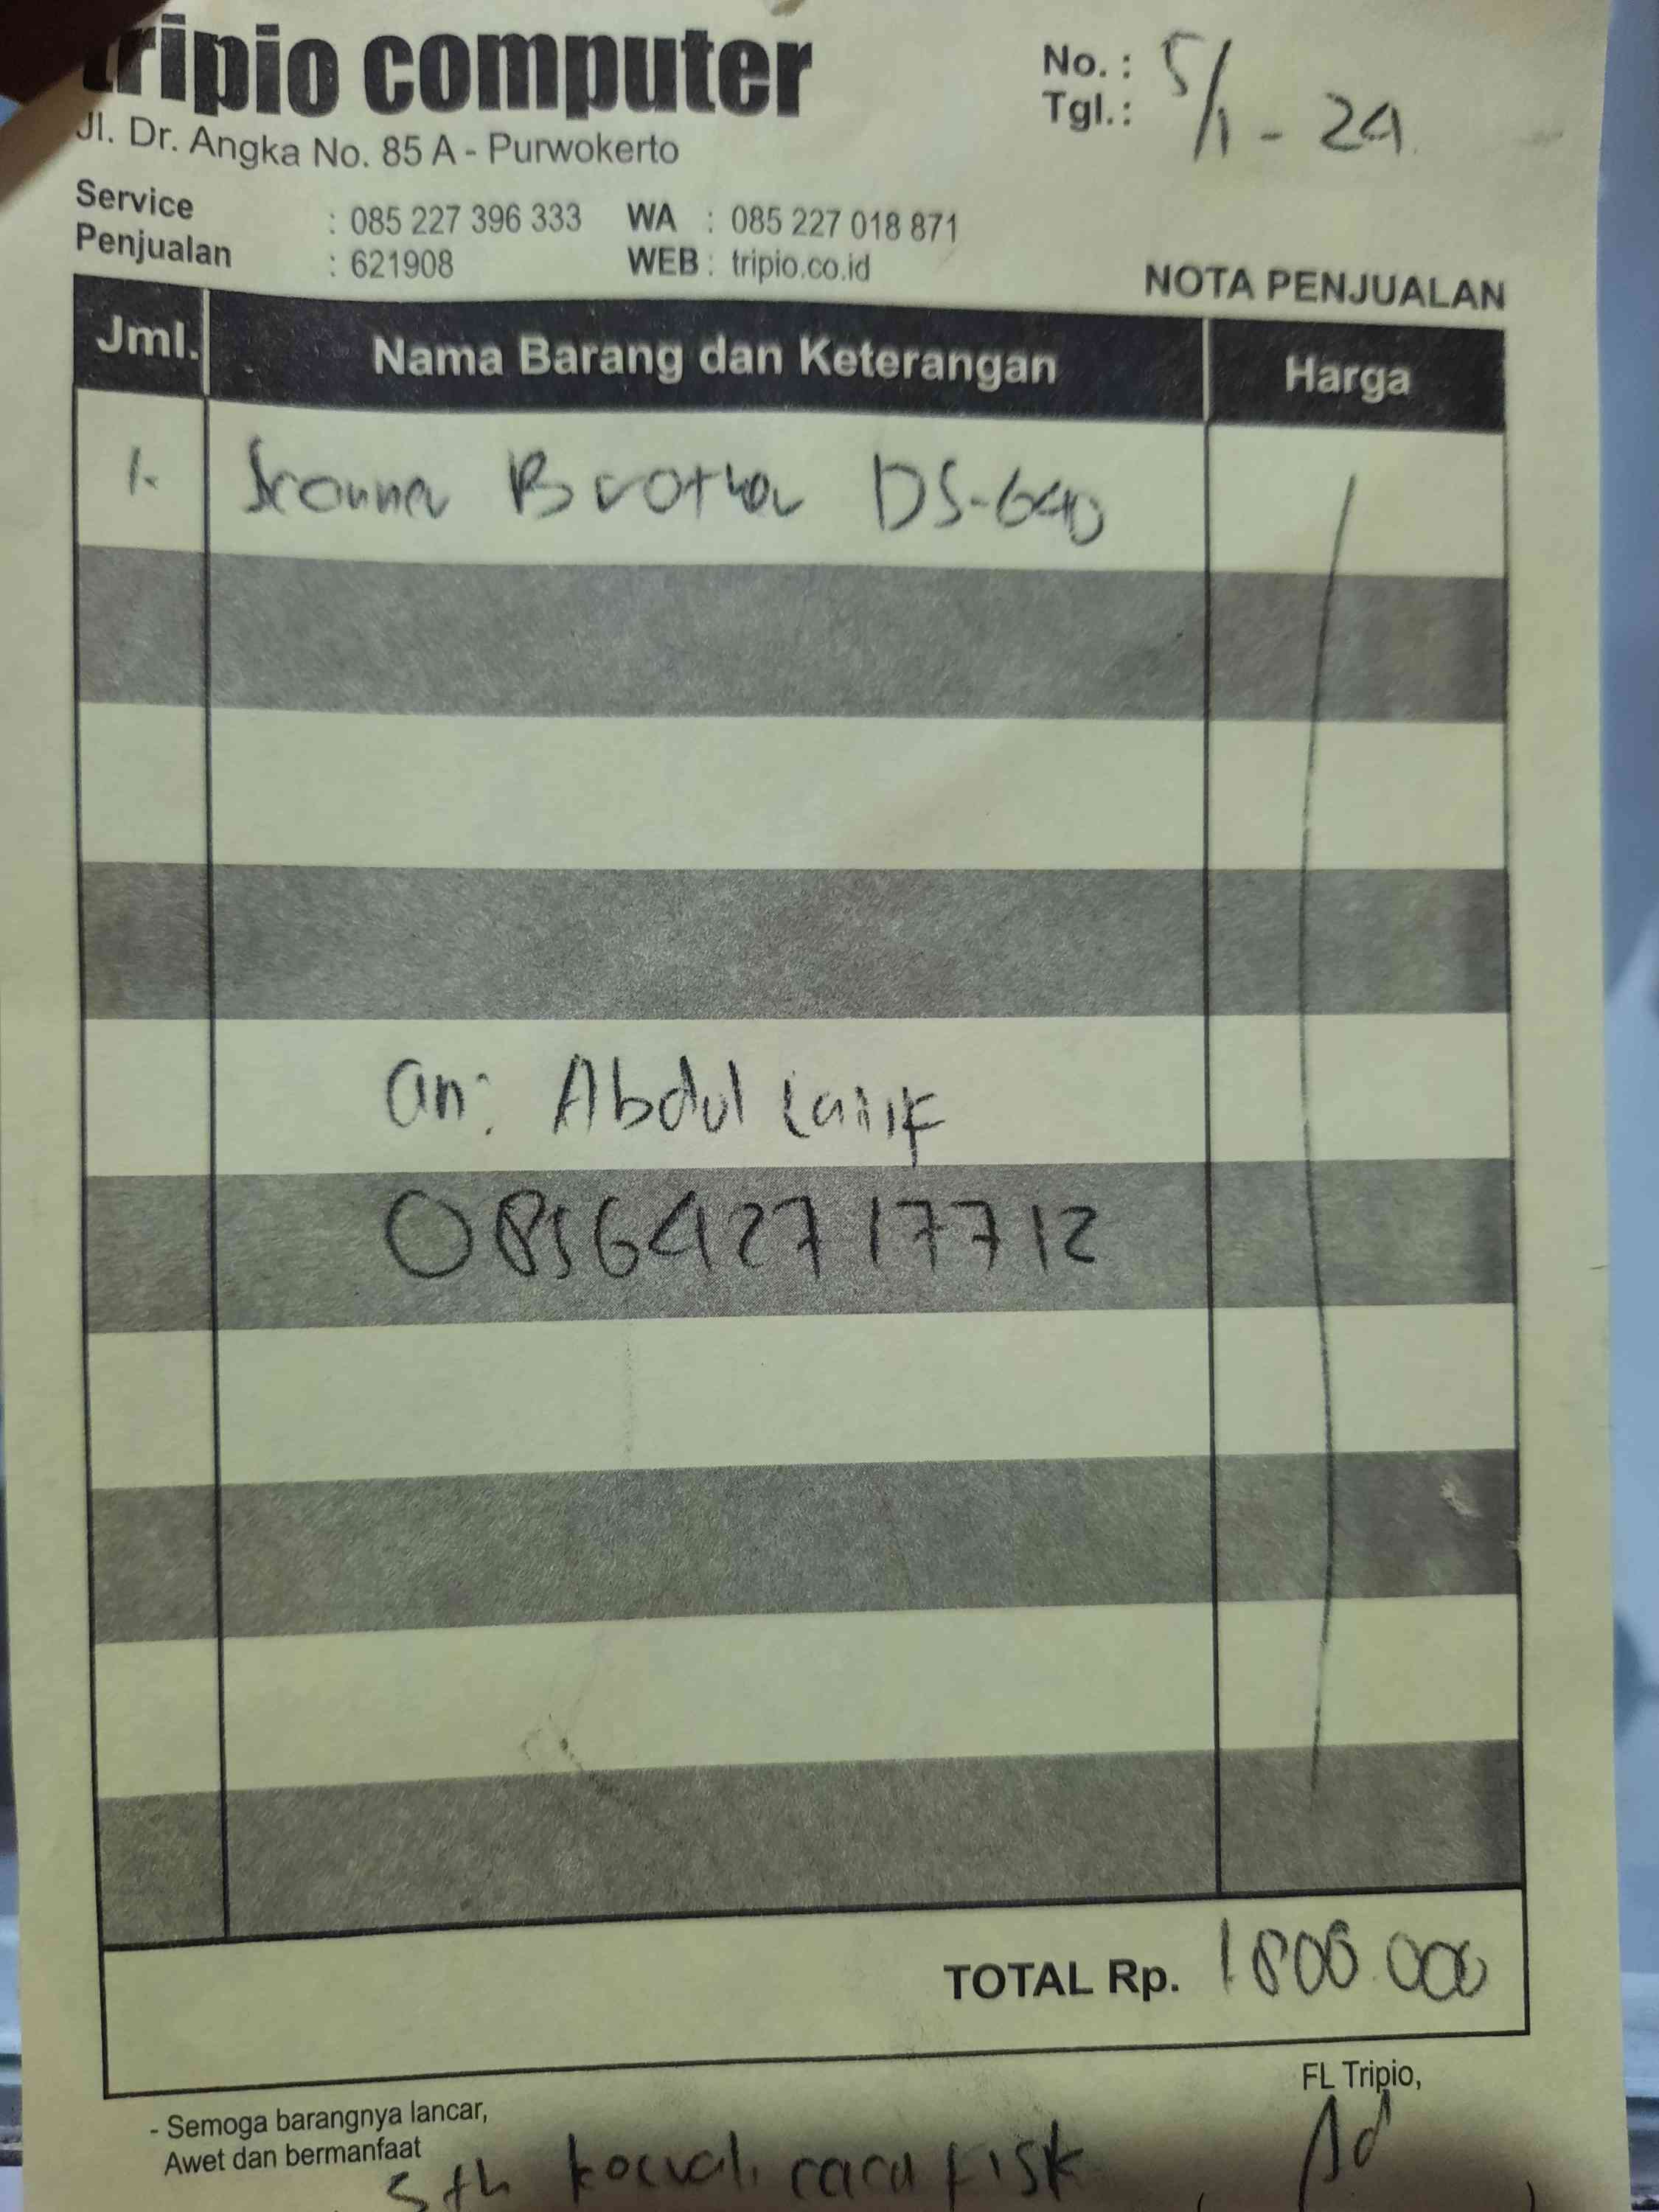 tripio computer
Jl. Dr. Angka No. 85 A - Purwokerto
No. :
Tgl.: 5/1 - 24
Service : 085 227 396 333 WA : 085 227 018 871
Penjualan : 621908 WEB : tripio.co.id
NOTA PENJUALAN
Jml. Nama Barang dan Keterangan Harga
1. Scanner Brother DS-640
an: Abdul
085642717712
TOTAL Rp. 1.800.000
FL Tripio,
- Semoga barangnya lancar,
Awet dan bermanfaat